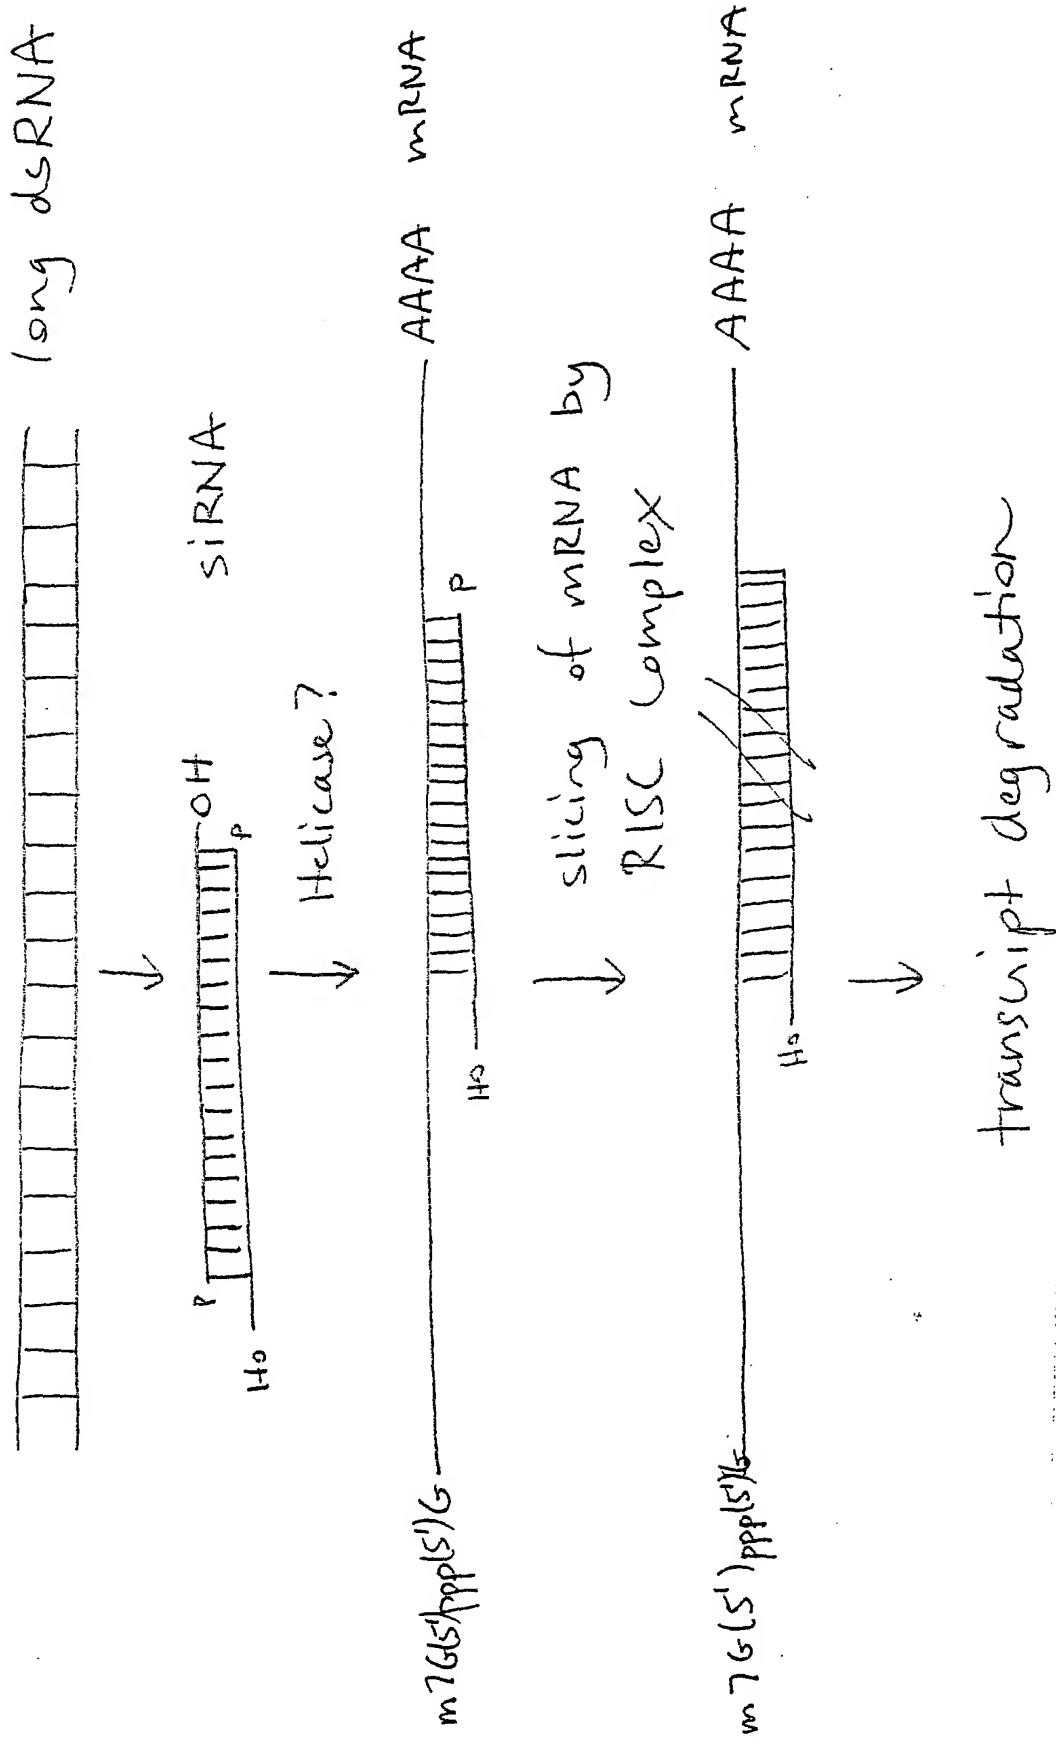 long dsRNA
P OH
HO P siRNA
Helicase?
m7G(5')ppp(5')G AAAA mRNA
HO P
slicing of mRNA by
RISC complex
m7G(5')ppp(5')G AAAA mRNA
HO
transcript degradation